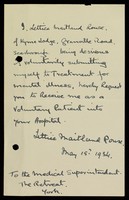 I, Lettice Maitland Rowe,
of Lyme Lodge, Granville Road,
being desirous
of voluntarily submitting
myself to Treatment for
mental illness, hereby request
you to Receive me as a
Voluntary Patient into
your Hospital.
Lettice Maitland Rowe
May 18th 1934.
To the Medical Superintendent.
The Retreat,
York.